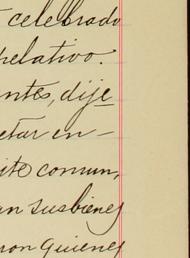 celebrado
pelativo.
ntes, dije
etar en-
ite comun,
an susbienes
ron quienes